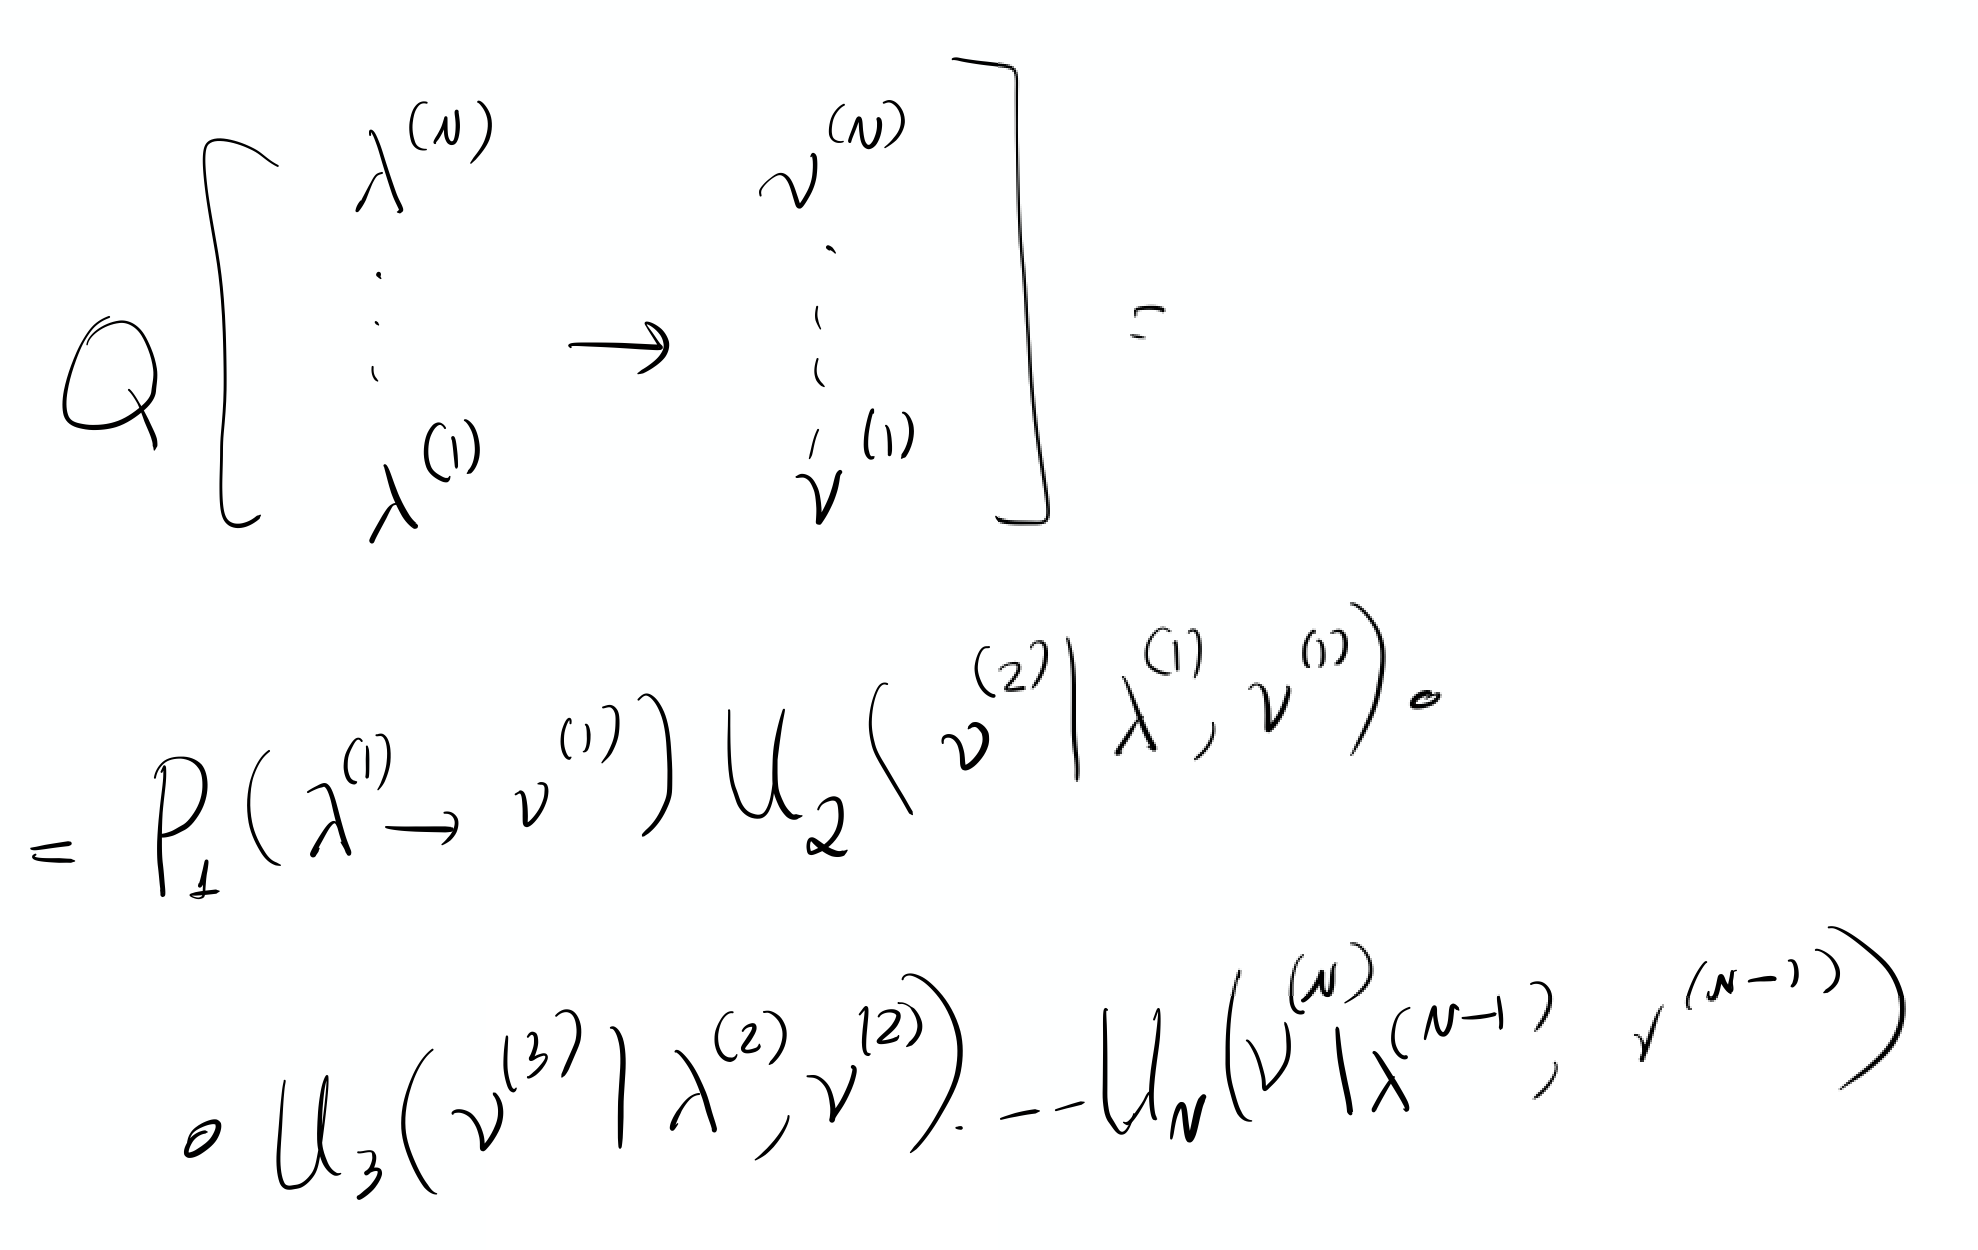 Q [ λ^(N) ⋮ λ^(1) → ν^(N) ⋮ ν^(1) ] =
= P_1 ( λ^(1) → ν^(1) ) U_2 ( ν^(2) | λ^(1), ν^(1) ) ·
· U_3 ( ν^(3) | λ^(2), ν^(2) ) . -- U_N ( ν^(N) | λ^(N-1), ν^(N-1) )